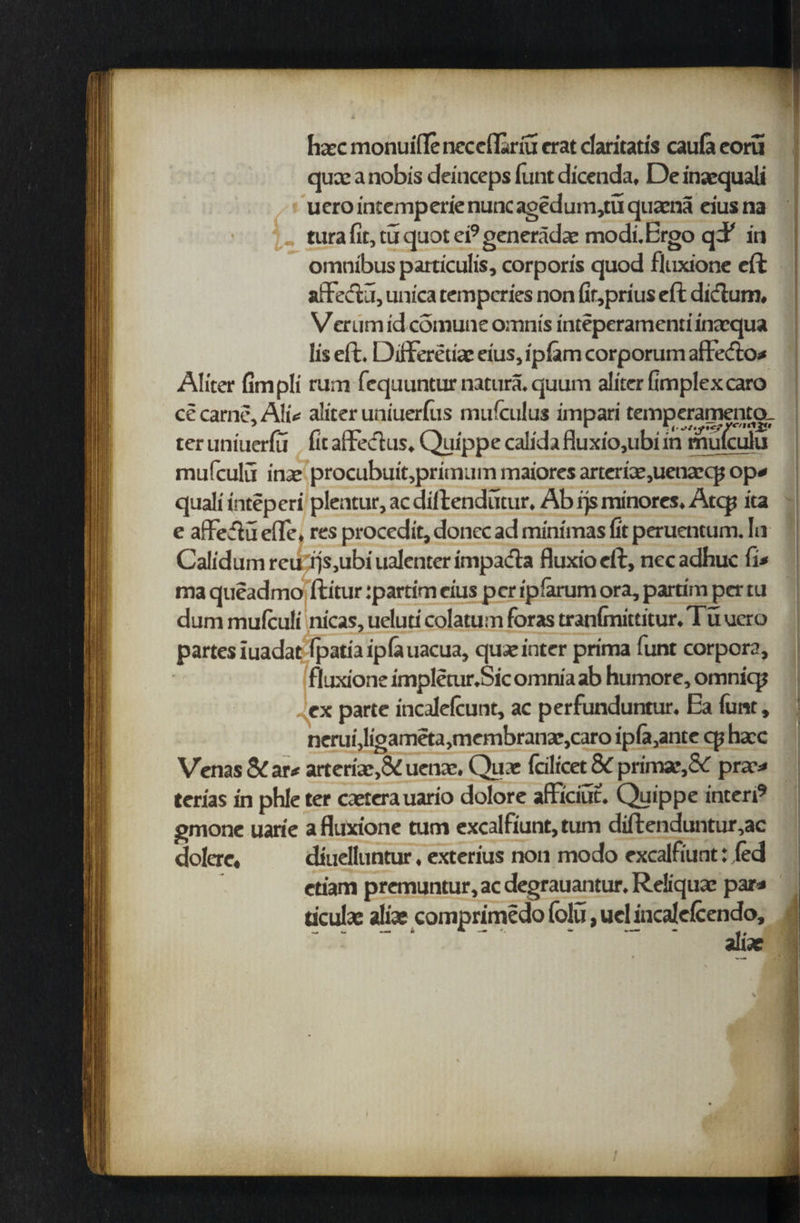 hæc monuiſſe neceſſariū erat claritatis cauſa eorū
quæ a nobis deinceps ſunt dicenda. De inæquali
uero intemperie nunc agēdum,tū quænā eius na
tura ſit, tū quot ei⁹ generādæ modi.Ergo qđ in
omnibus particulis, corporis quod fluxione eſt
affectū, unica temperies non ſit,prius eſt dictum.
Verum id cōmune omnis intēperamenti inæqua
lis eſt. Differētiæ eius, ipſam corporum affecto⸗
rum ſequuntur naturā. quum aliter ſimplex caro
aliter uniuerſus muſculus impari temperamento
ſit affectus. Quippe calida fluxio,ubi in muſculū
procubuit,primum maiores arteriæ,uenæcꝫ op⸗
plentur, ac diſtendūtur. Ab ijs minores. Atcꝫ ita
res procedit, donec ad minimas ſit peruentum. In
ijs,ubi ualenter impacta fluxio eſt, nec adhuc ſi⸗
ſtitur :partim eius per ipſarum ora, partim per tu
nicas, ueluti colatum foras tranſmittitur. Tū uero
ſpatia ipſa uacua, quæ inter prima ſunt corpora,
fluxione implētur.Sic omnia ab humore, omnicꝫ
ex parte incaleſcunt, ac perfunduntur. Ea ſunt,
nerui,ligamēta,membranæ,caro ipſa,ante cꝫ hæc
arteriæ,& uenæ. Quæ ſcilicet & primæ,& præ⸗
ter cætera uario dolore afficiūt. Quippe interi⁹
a fluxione tum excalfiunt,tum diſtenduntur,ac
diuelluntur. exterius non modo excalfiunt: ſed
etiam premuntur, ac degrauantur. Reliquæ par⸗
ticulæ aliæ comprimēdo ſolū, uel incaleſcendo,
aliæ
Aliter ſimpli
cē carnē, Ali⸗
ter uniuerſū
muſculū inæ
quali intēperi
e affectū eſſe.
Calidum reu
ma quēadmo
dum muſculi
partes īuadat
Venas & ar⸗
terias in phle
gmone uarie
dolere.